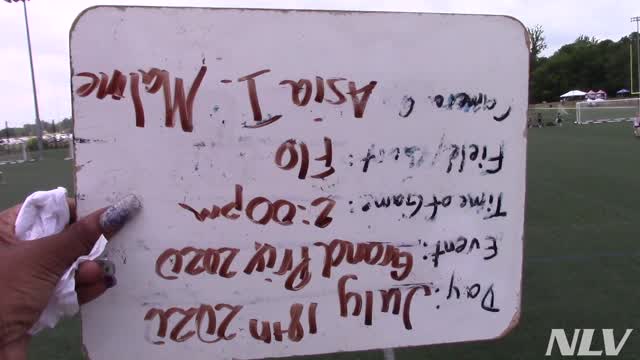 Day: July 18th 2020
Event: Grand Prix 2020
Time of Game: 2:00pm
Field/Court: Flo
Camera Asia I. Maline
NLV